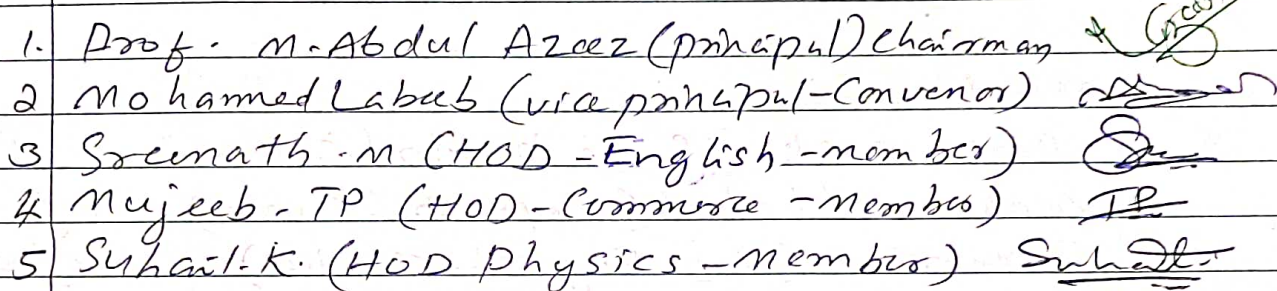 1. Prof. M. Abdul Azeez (principal) Chairman
2 Mohammed Labeeb (vice principal - Convenor)
3 Sreenath . M (HOD - English - member)
4 Mujeeb - TP (HOD - Commerce - Member) TP
5 Suhail. K. (HOD Physics - Member) Suhail